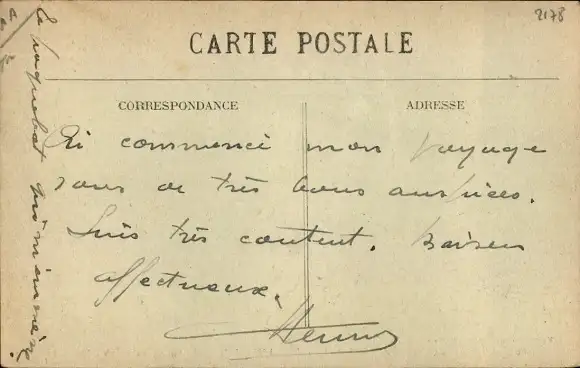 2178
CARTE POSTALE
CORRESPONDANCE
ADRESSE
Ai commencé mon voyage
sous de très bons auspices.
Suis très content. Baisers
affectueux.
Henry
Le paquebot qui m'emmène.